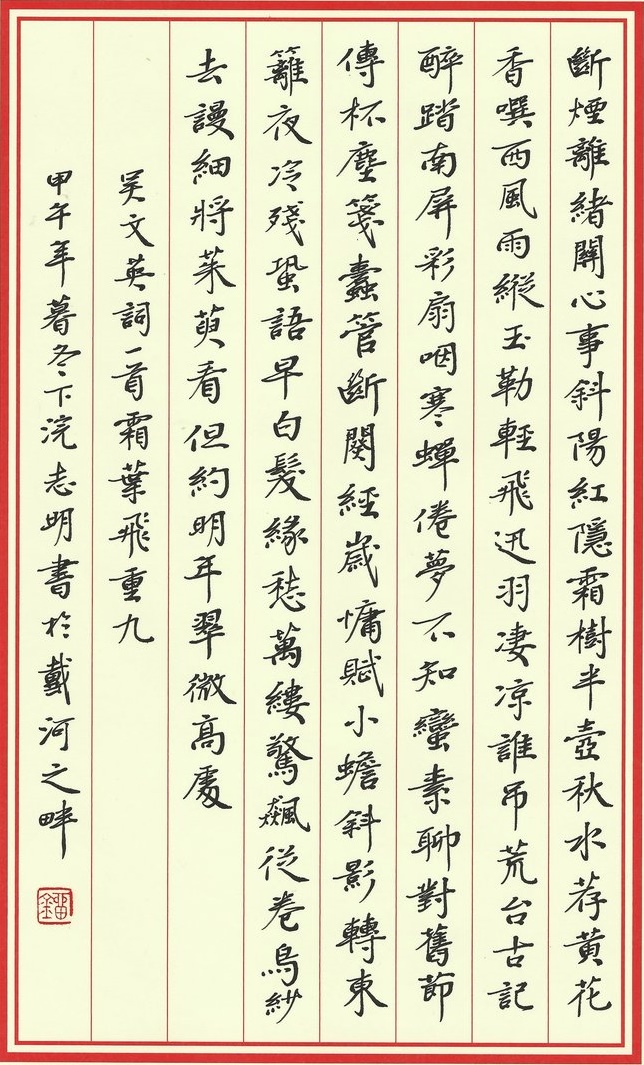 斷煙離緒關心事斜陽紅隱霜樹半壺秋水荐黃花
香噀西風雨縱玉勒輕飛迅羽凄凉誰吊荒台古記
醉踏南屏彩扇咽寒蟬倦夢不知蠻素聊對舊節
傳杯塵箋蠹管斷闋經歲慵賦小蟾斜影轉東
籬夜冷殘蛩語早白髮緣愁萬縷驚飆從卷烏紗
去謾細將茱萸看但約明年翠微高處
吴文英詞一首霜葉飛重九
甲午年暮冬下浣志明書於戴河之畔